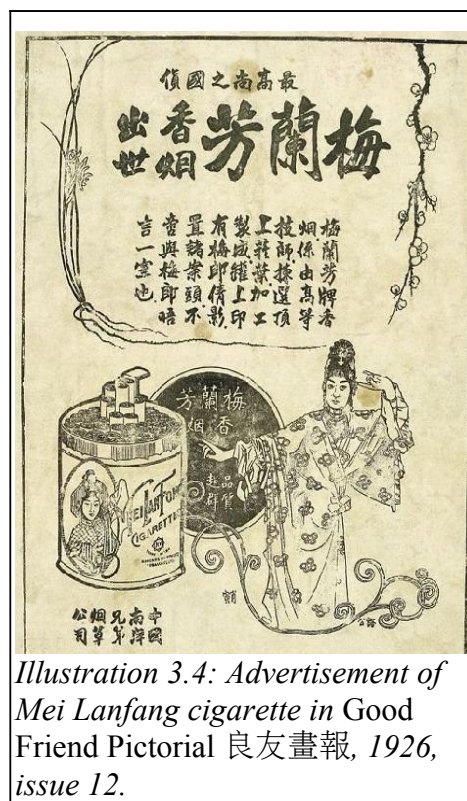 最高尚之國貨
梅蘭芳
香烟
出世
梅蘭芳牌香
烟係由高等
技師揀選頂
上菸葉加工
製成罐上印
有梅郎倩影
置諸案頭不
啻與梅郎晤
言一室也
梅蘭芳
香烟
品質
超群
MEI LAN FONG
CIGARETTES
中國
南洋
兄弟
烟草
公司
Illustration 3.4: Advertisement of
Mei Lanfang cigarette in Good
Friend Pictorial 良友畫報, 1926,
issue 12.